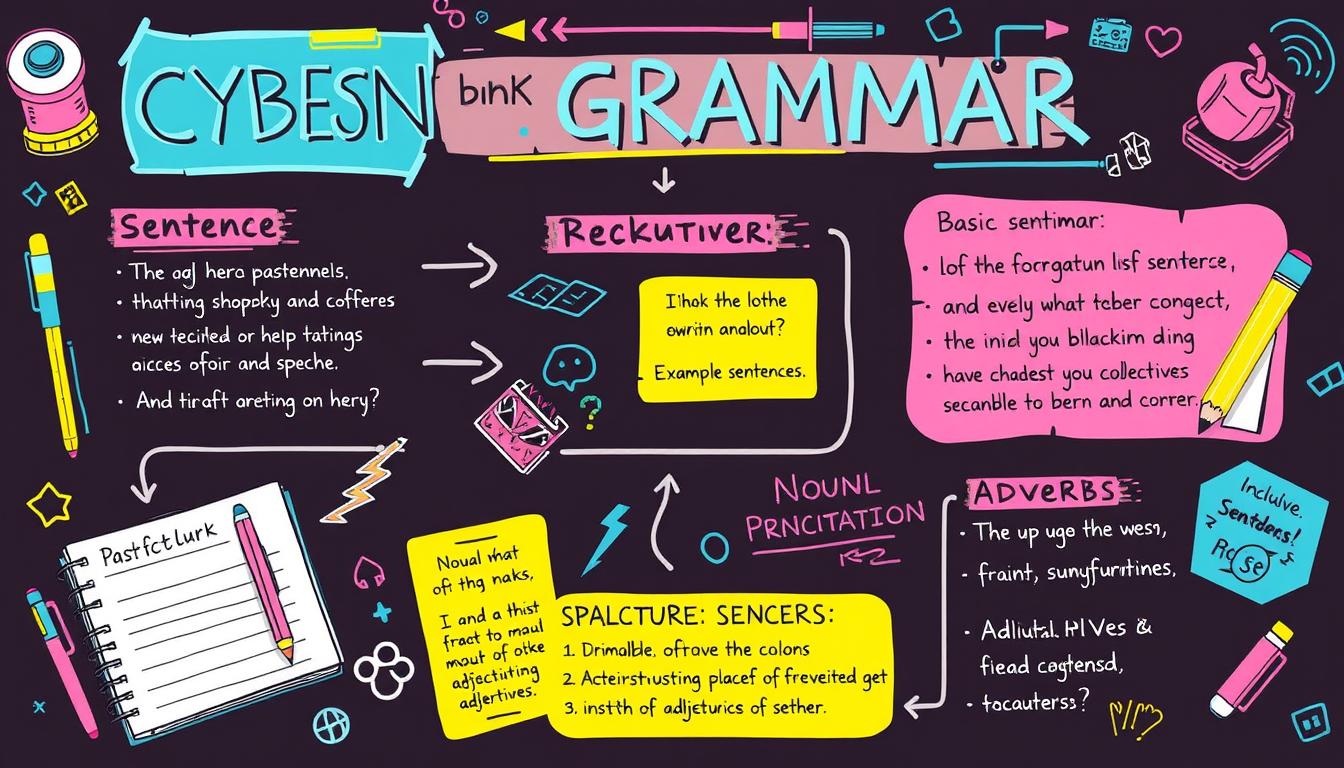 CYBESN bınK GRAMMAR
Sentence
• The aaj hero pastennels,
• thatting shopoky and cofferes
• new tecited or help tatings
aicces ofoir and speche.
• And tiraft areting on hery?
Reckutiver:
I'hok the lothe
owritin analout?
Example sentences.
Basic sentimar:
• lof the forrgatun lisf senterce,
• and evely what tcber congect,
• the inid you bllackim ding
• have chadest you collectives
secanble to bern and correr.
Pastfctlurk
Noual that
off thg naks,
I and a thist
fract to maul
mout of otke
adjectiiting
adjertives.
NOUNL
PRNCITATION
SPALCTURE: SENCERS:
1. Drimallble, ofrove the colons
2. Acteirstıusting placef of freveited get
3. instth of adljeturics of sether.
ADVERBS
• The up ugo the wesn,
• fraint, sunyfurıtines,
• Adliutal. HIVes &
fiead cogtensd,
• tocauterss?
Incluive.
Sentders!
Rose